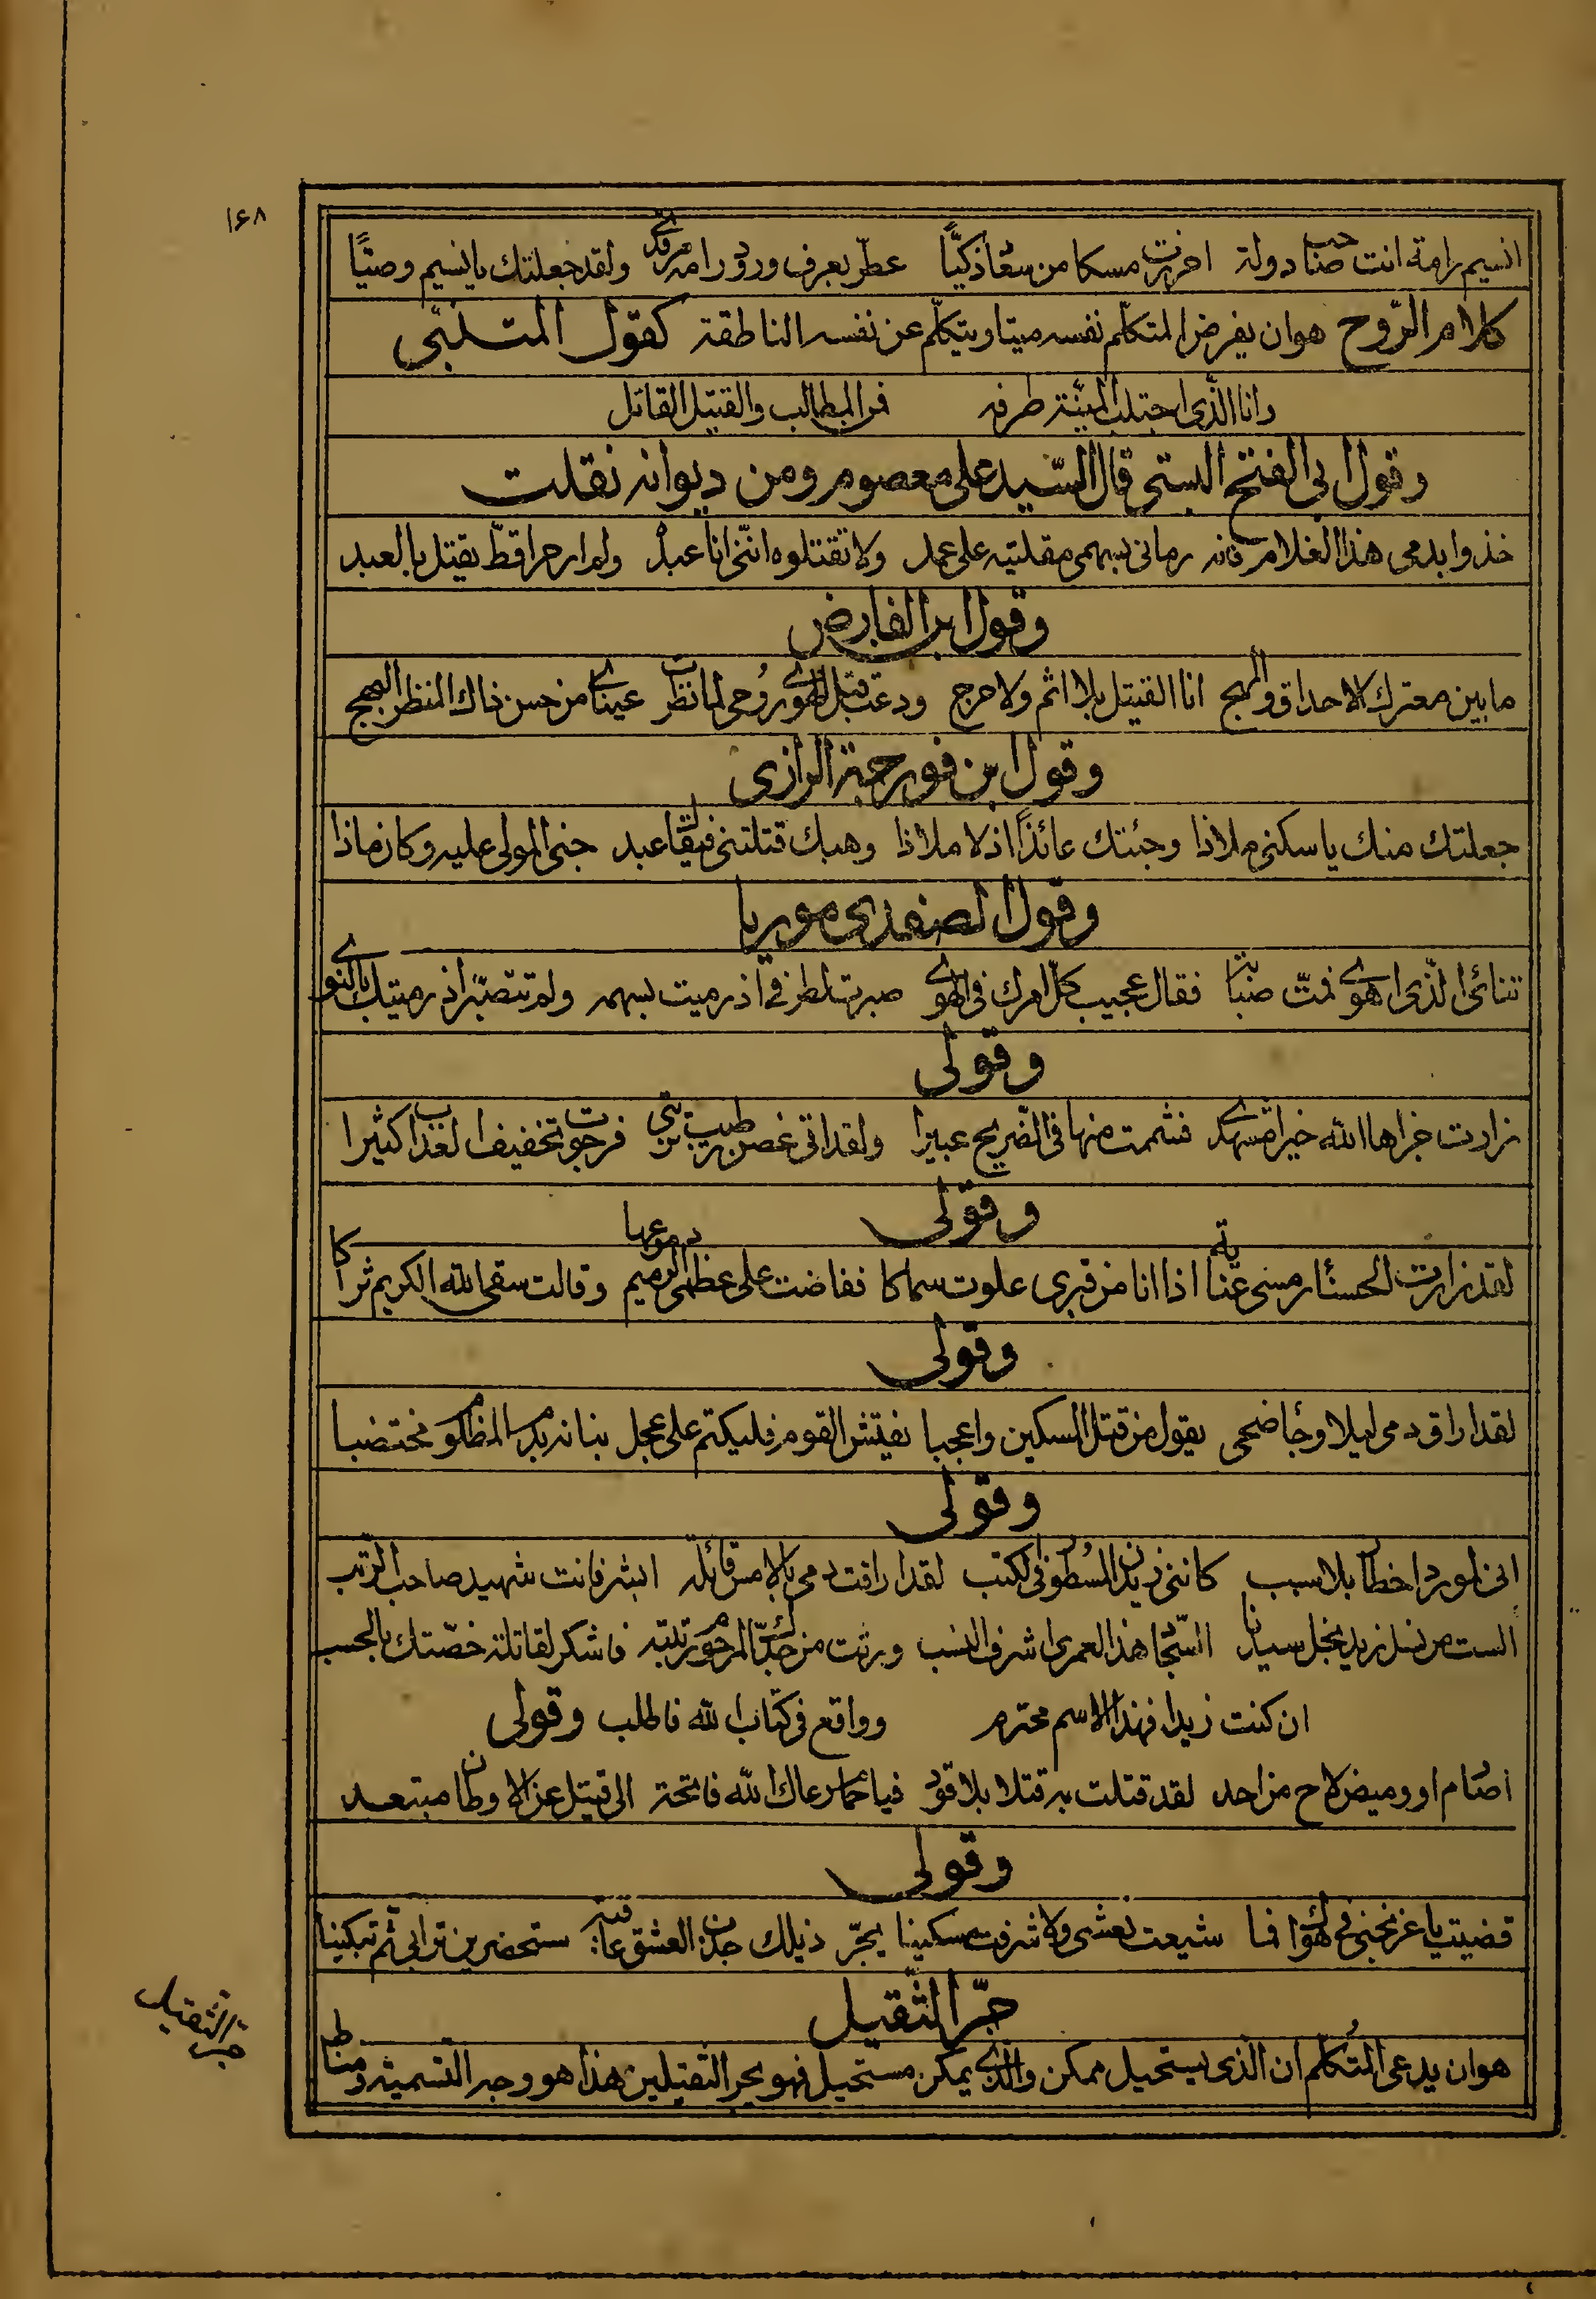 ١٦٨
انسيم رامة انت صاحب دولة احرزت مسكا من سعاد ذكيّا عطّر بعرف ورود رامة مرقدی ولقد جعلتك يا نسيم وصيّا
كلام الرّوح هو ان يفرض المتكلّم نفسه ميتا ويتكلّم عن نفسه الناطقة كقول المتنبّی
وانا الّذی اجتلب المنيّة طرفه فمن المطالب والقتيل القاتل
وقول ابی الفتح البستی قال السّيد علی معصوم ومن ديوانه نقلت
خذوا بدمی هذا الغلام فانه رمانی بسهمی مقلتيه علی عمد ولا تقتلوه انّنی انا عبدهٗ ولم ار حرا قطّ يقتل بالعبد
وقول ابن الفارض
ما بين معترك الاحداق والمهج انا القتيل بلا اثم ولا حرج ودعت قبل الهوی روحی لما نظرت عينای من حسن ذاك المنظر البهج
وقول ابن فورجة الرازی
جعلتك منك يا سكنی ملاذا وجئتك عائذًا اذ لا ملاذا وهبك قتلتنی فيقال عبد جنی المولی عليه وكان ماذا
وقول الصفدی موريا
تنائی الّذی اهوی فمتّ صبابة فقال عجيب كلّ امرك فی الهوی صبرت لطرفی اذ رميت بسهمه ولم تتصبّر اذ رميتك بالنوی
وقولی
زارت جزاها الله خيرا مشهدی فشممت منها فی الضّريح عبيرا ولقد اتی غصن رطيب تربتی فرجوت تخفيف العذاب كثيرا
وقولی
لقد زارت الحسنٰا رمسی عنّاية اذا انا من قبری علوت سماكا ففاضت علی عظمی الرميم دموعها وقالت سقی الله الكريم ثراكا
وقولی
لقد اراق دمی ليلا وجٰا ضحی يقول من قتل المسكين واعجبا نفيتش القوم فليكتم علی عجل بنانه بدم المظلوم مختضبا
وقولی
انی لمورد اخطار بلا سبب كاننی زيدن المسطور فی الكتب لقد اراقت دمی بالامس قائلة ابشر فانت شهيد صاحب الرتب
الست من نسل زيد نجل سيدنا السّجاد هذا لعمری اشرف النسب ورثت من جدّك المرحوم رتبته فاشكر لقاتلة خصّتك بالحسب
ان كنت زيدا فهذا الاسم محترم وواقع فی كتاب الله فاطلب وقولی
اصٰارم او وميض لاح من احد لقد قتلت به قتلا بلا قود فيا حمام رعاك الله فاتحة الی قتيل عن الاوطان مبتعد
وقولی
قضيت يا عز نجنی فی هواك فما شيعت نعشی ولا شرفت مسكينا بجرّ ذيلك جدن العشق عاقبة ستحضرين ترابی ثم تبكينا
جرّ الثّقيل
هو ان يدعی المتكلّم ان الذی يستحيل ممكن والذی يمكن مستحيل فهو يجر الثقيلين هذا هو وجه التسمية ومناط
جر الثقيل